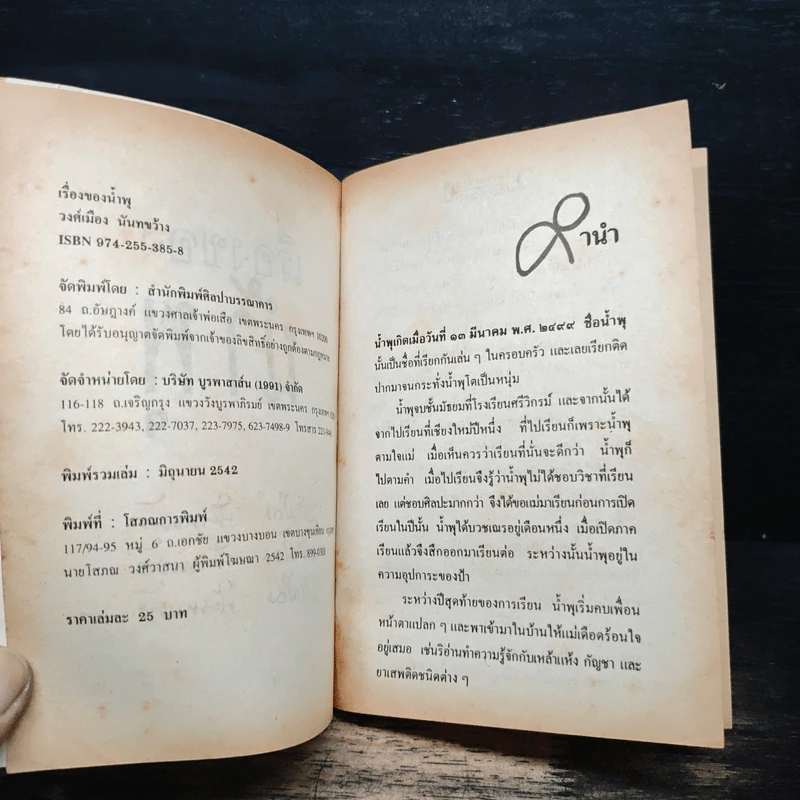 เรื่องของน้ำพุ
วงศ์เมือง นันทขว้าง
ISBN 974-255-385-8
จัดพิมพ์โดย : สำนักพิมพ์ศิลปาบรรณาคาร
84 ถ.อัษฎางค์ แขวงศาลเจ้าพ่อเสือ เขตพระนคร กรุงเทพฯ 10200
โดยได้รับอนุญาตจัดพิมพ์จากเจ้าของลิขสิทธิ์อย่างถูกต้องตามกฎหมาย
จัดจำหน่ายโดย : บริษัท บูรพาสาส์น (1991) จำกัด
116-118 ถ.เจริญกรุง แขวงวังบูรพาภิรมย์ เขตพระนคร กรุงเทพฯ
โทร. 222-3943, 222-7037, 223-7975, 623-7498-9 โทรสาร
พิมพ์รวมเล่ม : มิถุนายน 2542
พิมพ์ที่ : โสภณการพิมพ์
117/94-95 หมู่ 6 ถ.เอกชัย แขวงบางบอน เขตบางขุนเทียน
นายโสภณ วงศ์วาสนา ผู้พิมพ์โฆษณา 2542 โทร.
ราคาเล่มละ 25 บาท
คำนำ
น้ำพุเกิดเมื่อวันที่ ๑๓ มีนาคม พ.ศ. ๒๔๙๙ ชื่อน้ำพุ
นั้นเป็นชื่อที่เรียกกันเล่น ๆ ในครอบครัว และเลยเรียกติด
ปากมาจนกระทั่งน้ำพุโตเป็นหนุ่ม
น้ำพุจบชั้นมัธยมที่โรงเรียนศรีวิกรม์ และจากนั้นได้
จากไปเรียนที่เชียงใหม่ปีหนึ่ง ที่ไปเรียนก็เพราะน้ำพุ
ตามใจแม่ เมื่อเห็นควรว่าเรียนที่นั่นจะดีกว่า น้ำพุก็
ไปตามคำ เมื่อไปเรียนจึงรู้ว่าน้ำพุไม่ได้ชอบวิชาที่เรียน
เลย แต่ชอบศิลปะมากกว่า จึงได้ขอแม่มาเรียนก่อนการเปิด
เรียนในปีนั้น น้ำพุได้บวชเณรอยู่เดือนหนึ่ง เมื่อเปิดภาค
เรียนแล้วจึงสึกออกมาเรียนต่อ ระหว่างนั้นน้ำพุอยู่ใน
ความอุปการะของป้า
ระหว่างปีสุดท้ายของการเรียน น้ำพุเริ่มคบเพื่อน
หน้าตาแปลก ๆ และพาเข้ามาในบ้านให้แม่เดือดร้อนใจ
อยู่เสมอ เช่นริอ่านทำความรู้จักกับเหล้าแห้ง กัญชา และ
ยาเสพติดชนิดต่าง ๆ